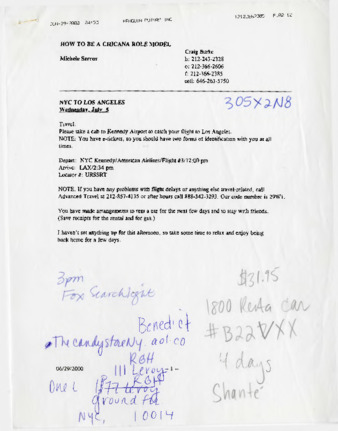 HOW TO BE A CHICANA ROLE MODEL
Michele Serros
Craig Burke
h: 212-247-2328
o: 212-366-2606
f: 212-366-2385
cell: 646-261-5750
NYC TO LOS ANGELES
Wednesday, July 5
305X2N8
Travel:
Please take a cab to Kennedy Airport to catch your flight to Los Angeles.
NOTE: You have e-tickets, so you should have two forms of identification with you at all
times.
Depart: NYC Kennedy/American Airlines/Flight #3/12:00 pm
Arrive: LAX/2:34 pm
Locator #: URSSRT
NOTE: If you have any problems with flight delays or anything else travel-related, call
Advanced Travel at 212-557-4135 or after hours call 888-542-3293. Our code number is
You have made arrangements to rent a car for the next few days and to stay with friends.
(Save receipts for the rental and for gas.)
I haven't set anything up for this afternoon, so take some time to relax and enjoy being
back home for a few days.
3pm
Fox Searchlight
$31.95
1800 Renta car
Benedict
# B22VXX
aol.co
4 days
RGH
06/29/2000
111 Leroy
- 1 -
Shante
One L
ground
NYC, 10014